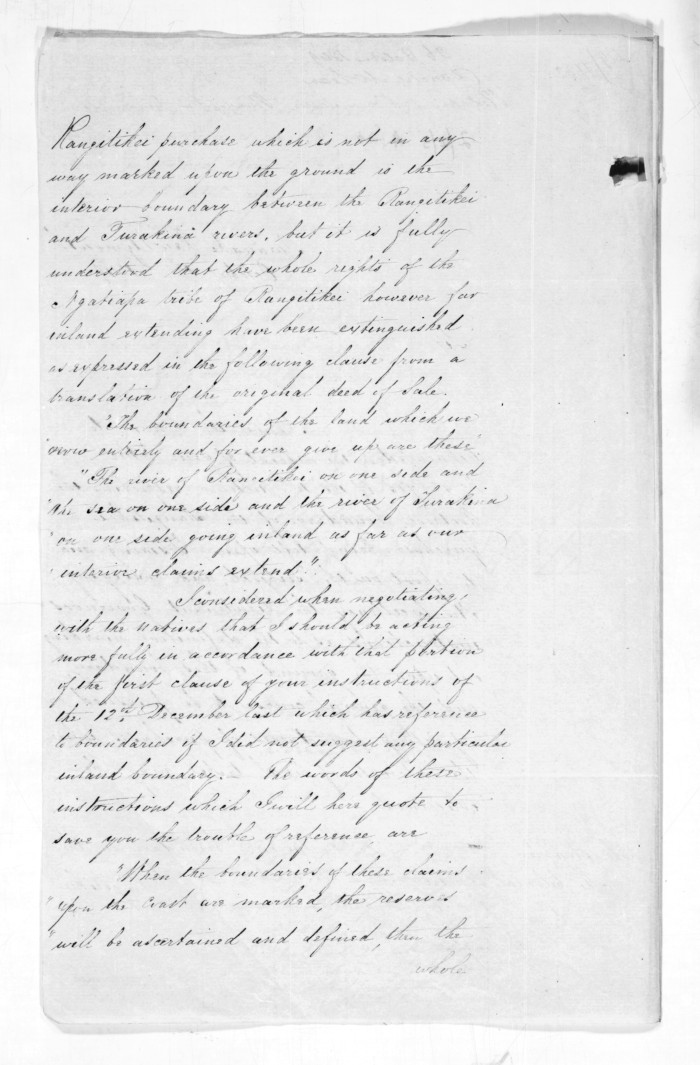 Rangitikei purchase which is not in any
way marked upon the ground is the
interior boundary between the Rangitikei
and Turakina rivers, but it is fully
understood that the whole rights of the
Ngatiapa tribe of Rangitikei however far
inland extending have been extinguished
as expressed in the following clause from a
translation of the original deed of Sale.
"The boundaries of the land which we
"now entirely and for ever give up are these
"The river of Rangitikei on one side and
"the sea on one side and the river of Turakina
"on one side going inland as far as our
"interior claims extend."
I considered when negotiating
with the natives that I should be acting
more fully in accordance with that portion
of the first clause of your instructions of
the 12th December last which has reference
to boundaries if I did not suggest any particular
inland boundary. The words of these
instructions which I will here quote to
save you the trouble of reference, are
"When the boundaries of these claims
"upon the Coast are marked, the reserves
"will be ascertained and defined, then the
whole